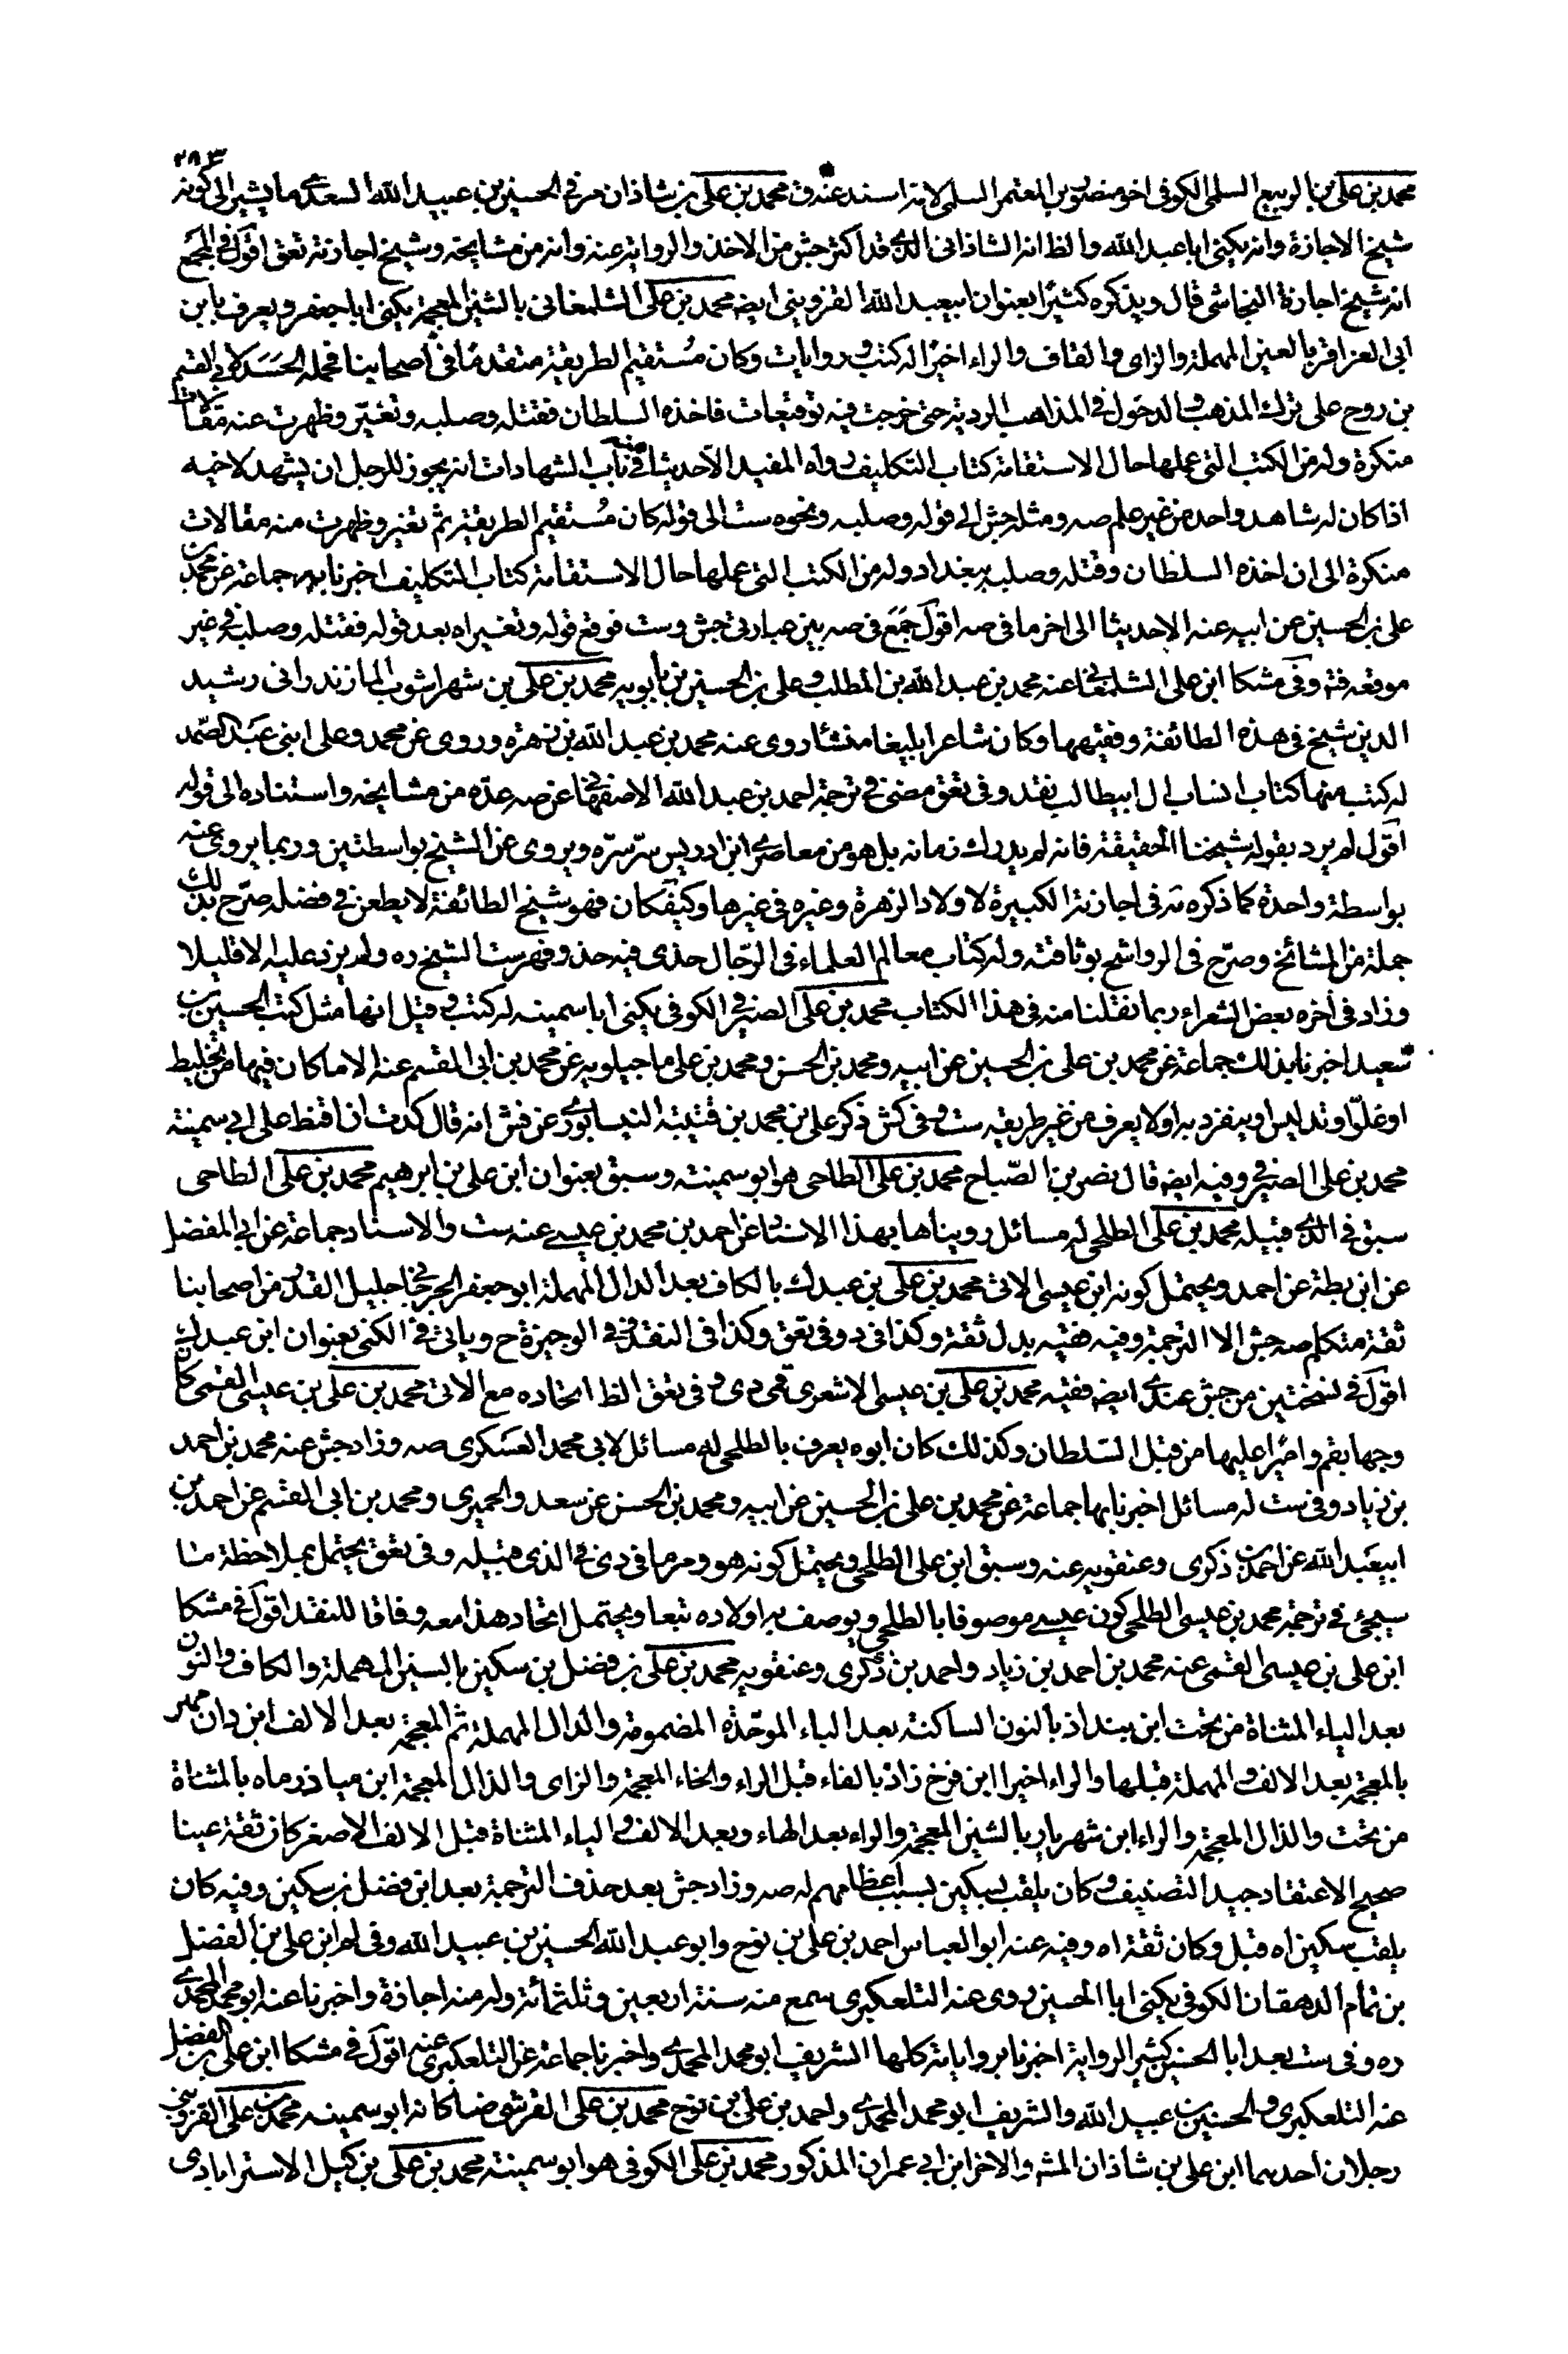 ٢٨٣
محمد بن علي بن الربيع السلمي الكوفي اخو منصور بن المعتمر السلمي لامه اسند عنه ق محمد بن علي بن شاذان مر في الحسين بن عبيد الله السعدي ما يشير الى كونه
شيخ الاجازة وانه يكنى ابا عبد الله والظ انه الشاذاني الذي قد اكثر جش من الاخذ والرواية عنه وانه من مشايخه وشيخ اجازته تعق اقول في المجمع
انه شيخ اجازة النجاشي قال ويذكره كثيرا بعنوان ابيعبد الله القزويني ايضه محمد بن علي الشلمغاني بالشين المعجمة يكنى ابا جعفر ويعرف بابن
ابي العزاقر بالعين المهملة والزاى والقاف والراء اخيرا له كتب وروايات وكان مستقيم الطريقة متقدما في اصحابنا فحمله الحسد لابي القسم
بن روح على ترك المذهب والدخول في المذاهب الردية حتى خرجت فيه توقيعات فاخذه السلطان فقتله وصلبه وتغير وظهرت عنه مقالات
منكرة وله من الكتب التي عملها حال الاستقامة كتاب التكليف رواه المفيد الا حديثا منه في باب الشهادات انه يجوز للرجل ان يشهد لاخيه
اذا كان له شاهد واحد من غير علم صه ومثله جش الى قوله وصلبه ونحوه ست الى قوله كان مستقيم الطريقة ثم تغير وظهرت منه مقالات
منكرة الى ان اخذه السلطان وقتله وصلبه ببغداد وله من الكتب التي عملها حال الاستقامة كتاب التكليف اخبرنا به جماعة عن محمد بن
علي بن الحسين عن ابيه عنه الا حديثا الى اخر ما في صه اقول جمع في صه بين عبارتي جش وست فوقع قوله وتغير اه بعد قوله فقتله وصلبه في غير
موقعه فته وفي مشكا ابن علي الشلمغاني عنه محمد بن عبد الله بن المطلب وعلي بن الحسين بن بابويه محمد بن علي بن شهراشوب المازندراني رشيد
الدين شيخ في هذه الطائفة وفقيهها وكان شاعرا بليغا منشئا روى عنه محمد بن عبد الله بن زهرة وروى عن محمد وعلي ابني عبد الصمد
له كتب منها كتاب انساب ال ابيطالب نقد وفي تعق مضى في ترجمة احمد بن عبد الله الاصفهاني عن صه عده من مشايخه واستناده الى قوله
اقول لم يرد بقوله شيخنا الحقيقة فانه لم يدرك زمانه بل هو من معاصري ابن ادريس سر سره ويروى عن الشيخ بواسطتين وربما يروى عنه
بواسطة واحدة كما ذكره ته في اجازته الكبيرة لاولاد الزهرة وغيره في غيرها وكيف كان فهو شيخ الطائفة لا يطعن في فضله صرح بذلك
جملة من المشائخ وصرح في الرواشح بوثاقته وله كتاب معالم العلماء في الرجال حذى فيه حذو فهرست الشيخ ره ولم يزد عليه الا قليلا
وزاد في اخره بعض الشعراء ربما نقلنا منه في هذا الكتاب محمد بن علي الصيرفي الكوفي يكنى ابا سمينه له كتب وقيل انها مثل كتب الحسين بن
سعيد اخبرنا بذلك جماعة عن محمد بن علي بن الحسين عن ابيه ومحمد بن الحسن ومحمد بن علي ماجيلويه عن محمد بن ابي القسم عنه الا ما كان فيها من تخليط
او غلو او تدليس او ينفرد به او لا يعرف من غير طريقه ست وفي كش ذكر علي بن محمد بن قتيبة النيسابوري عن فش انه قال كدت ان اقنط على ابي سمينة
محمد بن علي الصيرفي وفيه ايضه قال نصر بن الصباح محمد بن علي الطاحي هو ابو سمينة وسبق بعنوان ابن علي بن ابرهيم محمد بن علي الطاحى
سبق في الذي قبيله محمد بن علي الطلحي له مسائل رويناها بهذا الاسناد عن احمد بن محمد بن عيسى عنه ست والاسناد جماعة عن ابي المفضل
عن ابن بطة عن احمد ويحتمل كونه ابن عيسى الاتى محمد بن علي بن عبدك بالكاف بعد الدال المهملة ابو جعفر الجرجاني جليل القدر من اصحابنا
ثقة متكلم صه جش الا الترجمة وفيه فقيه بدل ثقة وكذا في د وفي تعق وكذا في النقد في الوجيزة ح وياتي في الكنى بعنوان ابن عبدك
اقول في نسختين من جش عندي ايضه فقيه محمد بن علي بن عيسى الاشعري قمى دى وفي تعق الظ اتحاده مع الاتى محمد بن علي بن عيسى القمى كان
وجها بقم واميرا عليها من قبل السلطان وكذلك كان ابوه يعرف بالطلحى له مسائل لابي محمد العسكرى صه وزاد جش عنه محمد بن احمد
بن زياد وفي ست له مسائل اخبرنا بها جماعة عن محمد بن علي بن الحسين عن ابيه ومحمد بن الحسن عن سعد والحميرى ومحمد بن ابي القسم عن احمد بن
ابيعبد الله عن احمد بن ذكرى وعنقويه عنه وسبق ابن علي الطلحى ويحتمل كونه هو ومر ما في دى في الذى قبيله وفي تعق يحتمل بملاحظة ما
سيجئ في ترجمة محمد بن عيسى الطلحى كون عيسى موصوفا بالطلحى ويوصف به اولاده تبعا ويحتمل اتحاد هذا معه وفاقا للنقد اقول في مشكا
ابن علي بن عيسى القمى عنه محمد بن احمد بن زياد واحمد بن ذكرى وعنقويه محمد بن علي بن فضل بن سكين بالسين المهملة والكاف والنون
بعد الياء المثناة من تحت ابن بنداذ بالنون الساكنة بعد الباء الموحدة المضمومة والدال المهملة ثم المعجمة بعد الالف ابن داذ مهر
بالمعجمة بعد الالف والمهملة قبلها والراء اخيرا ابن فرخ زاذ بالفاء قبل الراء والخاء المعجمة والزاى والذال المعجمة ابن مياذرماه بالمثناة
من تحت والذال المعجمة والراء ابن شهريار بالشين المعجمة والراء بعد الهاء وبعد الالف والياء المثناة قبل الالف الاصغر كان ثقة عينا
صحيح الاعتقاد جيد التصنيف وكان يلقب بسكين بسبب اعظامهم له صه وزاد جش بعد حذف الترجمة بعد ابن فضل بن سكين وفيه كان
يلقب سكين اه قبل وكان ثقة اه وفيه عنه ابو العباس احمد بن علي بن نوح وابو عبد الله الحسين بن عبيد الله وفي لم ابن علي بن الفضل
بن تمام الدهقان الكوفي يكنى ابا الحسين روى عنه التلعكبرى سمع منه سنة اربعين وثلثمائة وله منه اجازة واخبرنا عنه ابو محمد المحمدى
ره وفي ست بعد ابا الحسين كثير الرواية اخبرنا برواياته كلها الشريف ابو محمد المحمدي واخبرنا جماعة عن التلعكبرى عنه اقول في مشكا ابن علي بن الفضل
عنه التلعكبرى والحسين بن عبيد الله والشريف ابو محمد المحمدي واحمد بن علي بن نوح محمد بن علي القرشى ضا كانه ابو سمينه محمد بن علي القزوينى
رجلان احدهما ابن علي بن شاذان المشه والاخر ابن ابي عمران المذكور محمد بن علي الكوفى هو ابو سمينة محمد بن علي بن كيل الاسترابادى